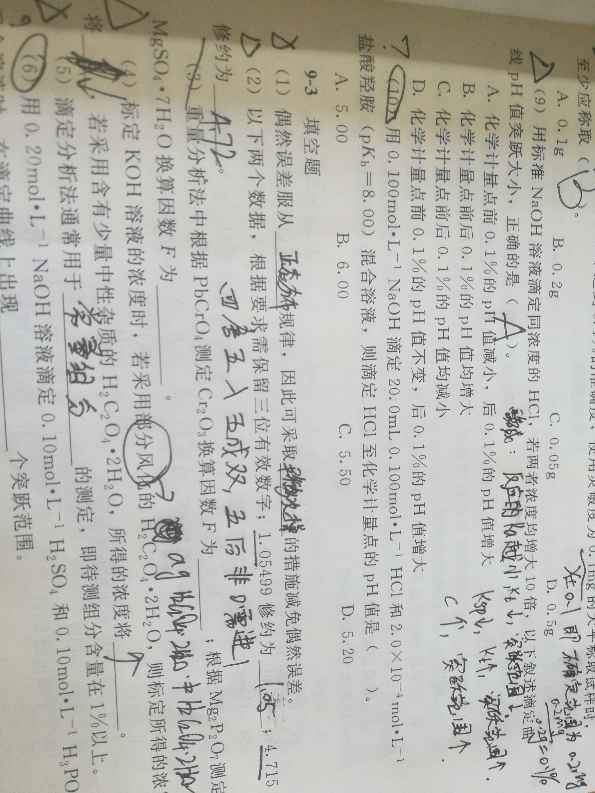 至少应称取（B）。
A. 0.1g B. 0.2g C. 0.05g D. 0.5g
（9）用标准 NaOH 溶液滴定同浓度的 HCl，若两者浓度均增大 10 倍，以下叙述滴定曲
线 pH 值突跃大小，正确的是（A）。
A. 化学计量点前 0.1%的 pH 值减小，后 0.1%的 pH 值增大
B. 化学计量点前后 0.1%的 pH 值均增大
C. 化学计量点前后 0.1%的 pH 值均减小
D. 化学计量点前 0.1%的 pH 值不变，后 0.1%的 pH 值增大
（10）用 0.100mol•L⁻¹ NaOH 滴定 20.0mL 0.100mol•L⁻¹ HCl 和 2.0×10⁻⁴mol•L⁻¹
盐酸羟胺（pKb=8.00）混合溶液，则滴定 HCl 至化学计量点的 pH 值是（ ）。
A. 5.00 B. 6.00 C. 5.50 D. 5.20
9-3 填空题
（1）偶然误差服从 正态分布 规律，因此可采取 的措施减免偶然误差。
（2）以下两个数据，根据要求需保留三位有效数字：1.05499 修约为 1.05；4.715
修约为 4.72。
四舍五入五成双，五后非0需进1
（3）重量分析法中根据 PbCrO₄测定 Cr₂O₃换算因数 F 为 ；根据 Mg₂P₂O₇测定
MgSO₄•7H₂O 换算因数 F 为 。
（4）标定 KOH 溶液的浓度时，若采用部分风化的 H₂C₂O₄•2H₂O，则标定所得的浓
将 ；若采用含有少量中性杂质的 H₂C₂O₄•2H₂O，所得的浓度将 个 。
（5）滴定分析法通常用于 常量组分 的测定，即待测组分含量在 1%以上。
（6）用 0.20mol•L⁻¹ NaOH 溶液滴定 0.10mol•L⁻¹ H₂SO₄ 和 0.10mol•L⁻¹ H₃PO
滴定曲线上出现 个突跃范围。